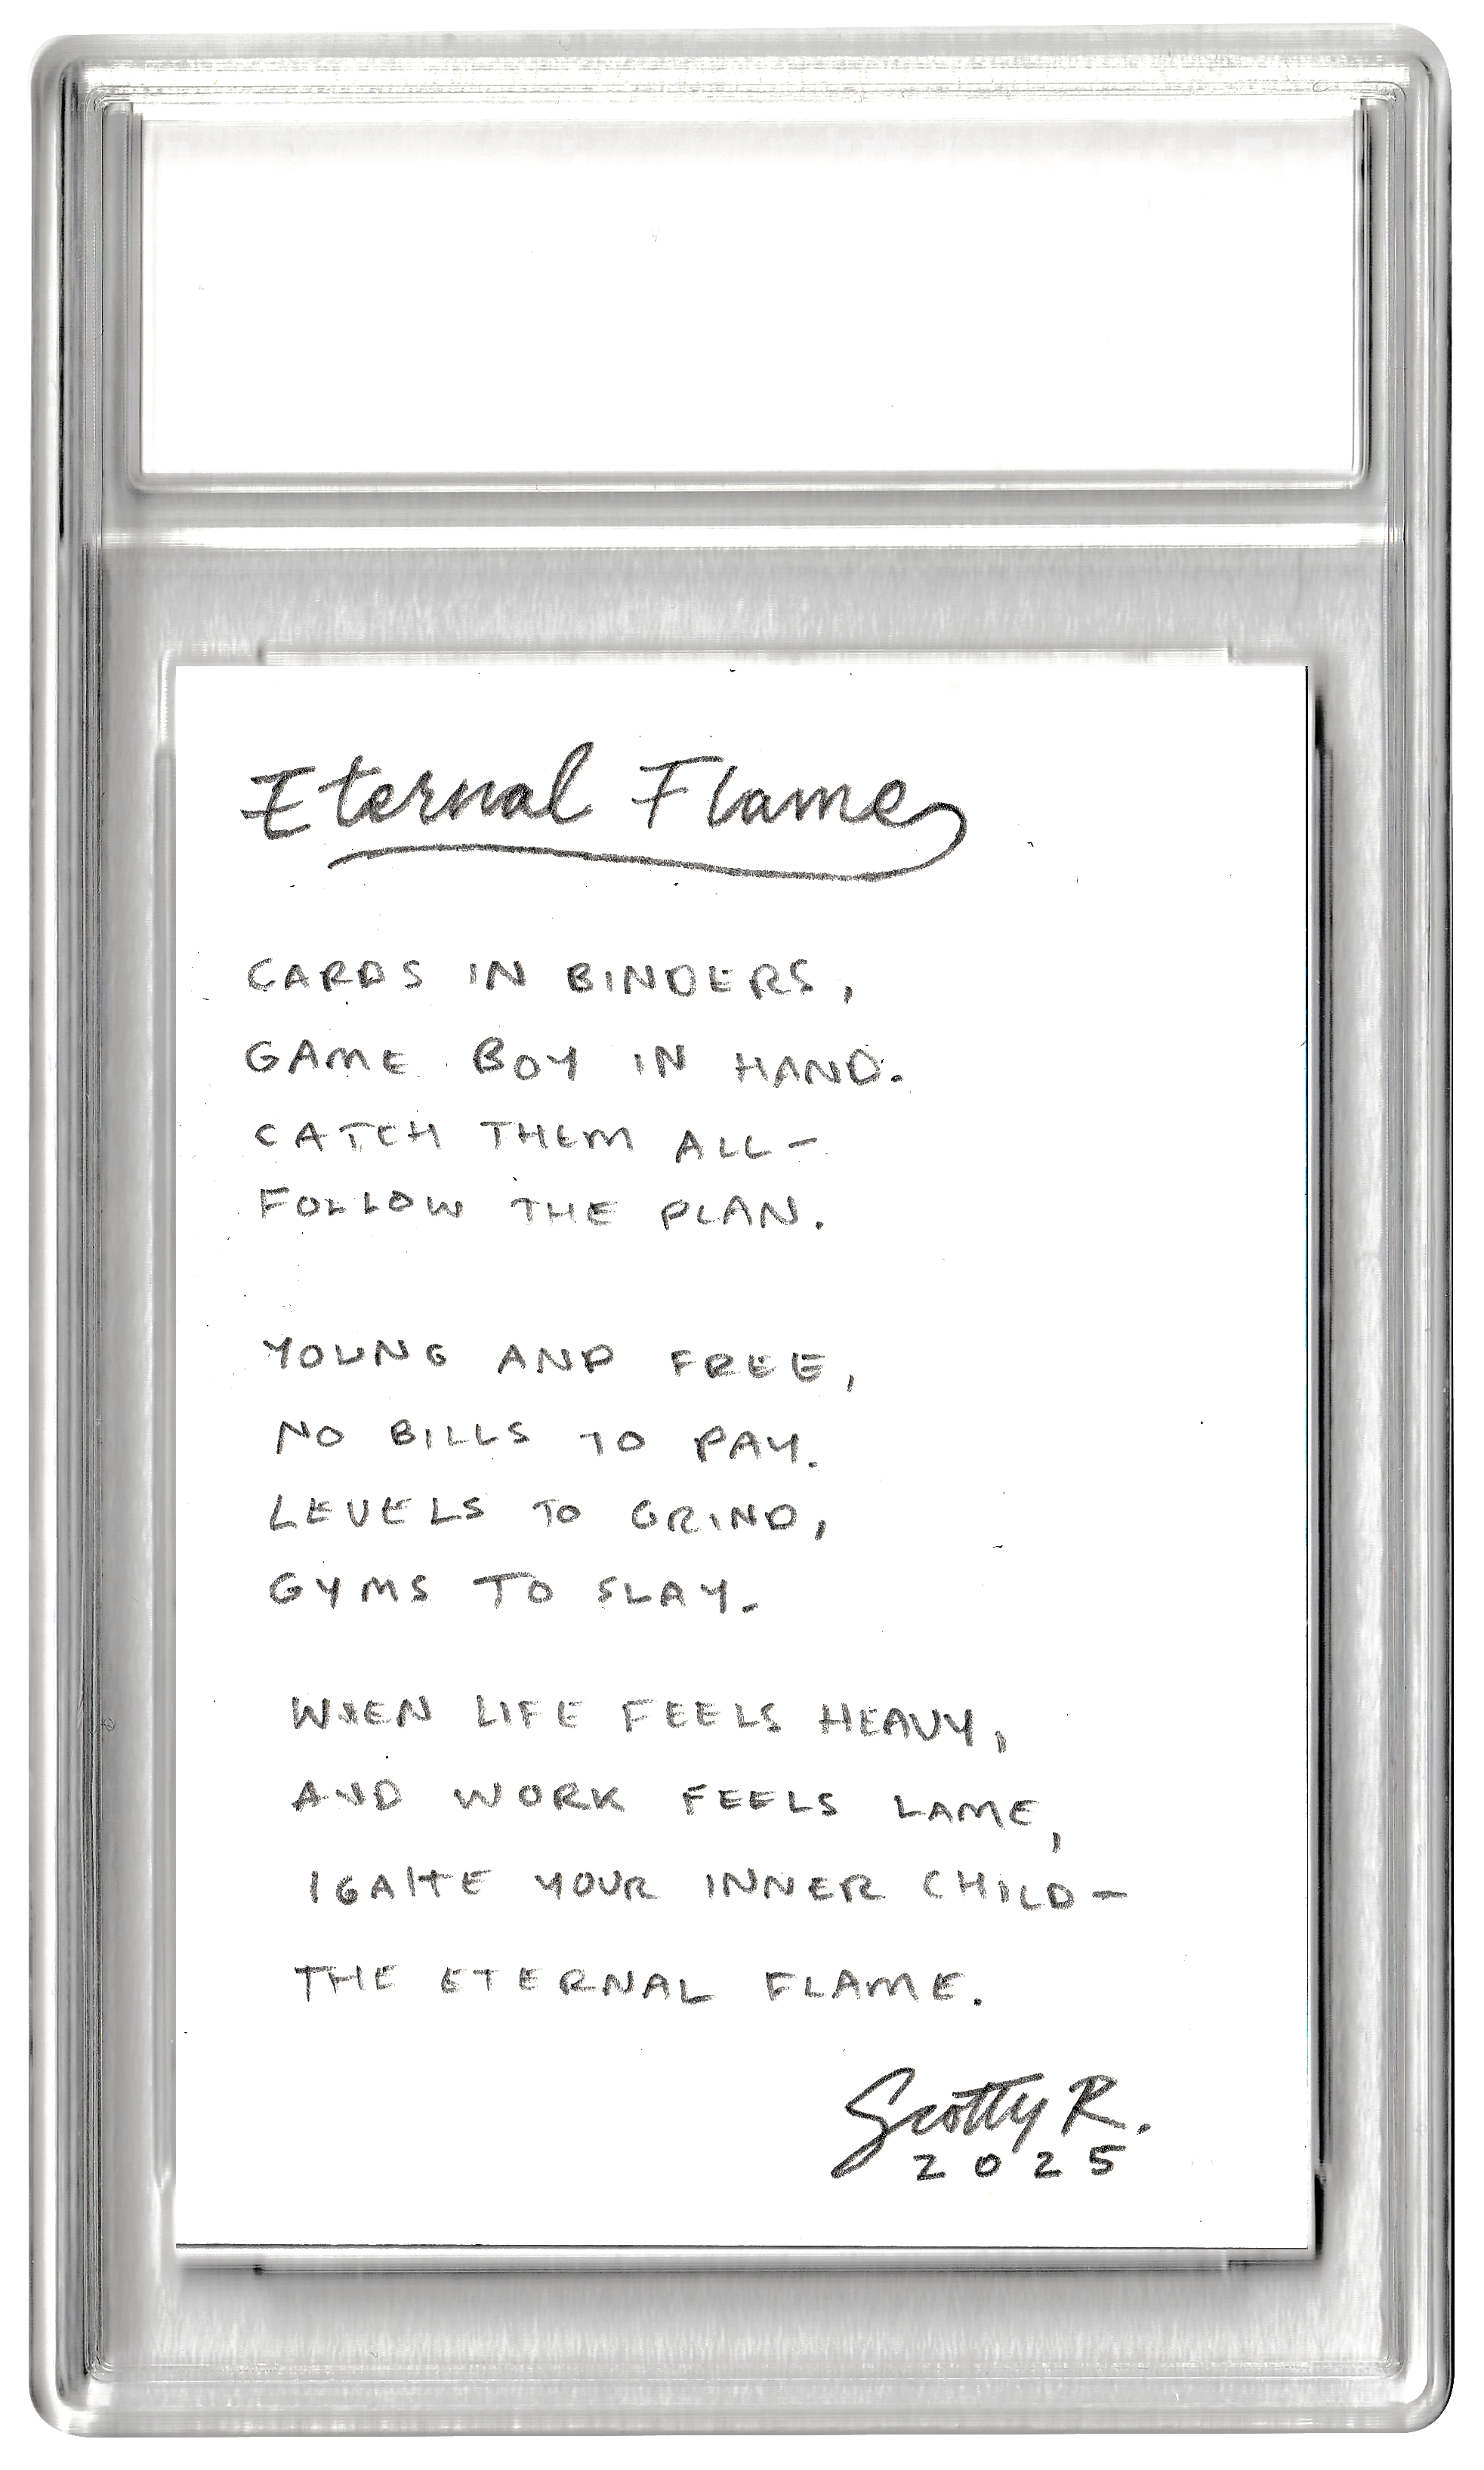 Eternal Flame
CARDS IN BINDERS,
GAME BOY IN HAND.
CATCH THEM ALL-
FOLLOW THE PLAN.
YOUNG AND FREE,
NO BILLS TO PAY.
LEVELS TO GRIND,
GYMS TO SLAY.
WHEN LIFE FEELS HEAVY,
AND WORK FEELS LAME,
IGNITE YOUR INNER CHILD-
THE ETERNAL FLAME.
Scotty R.
2025